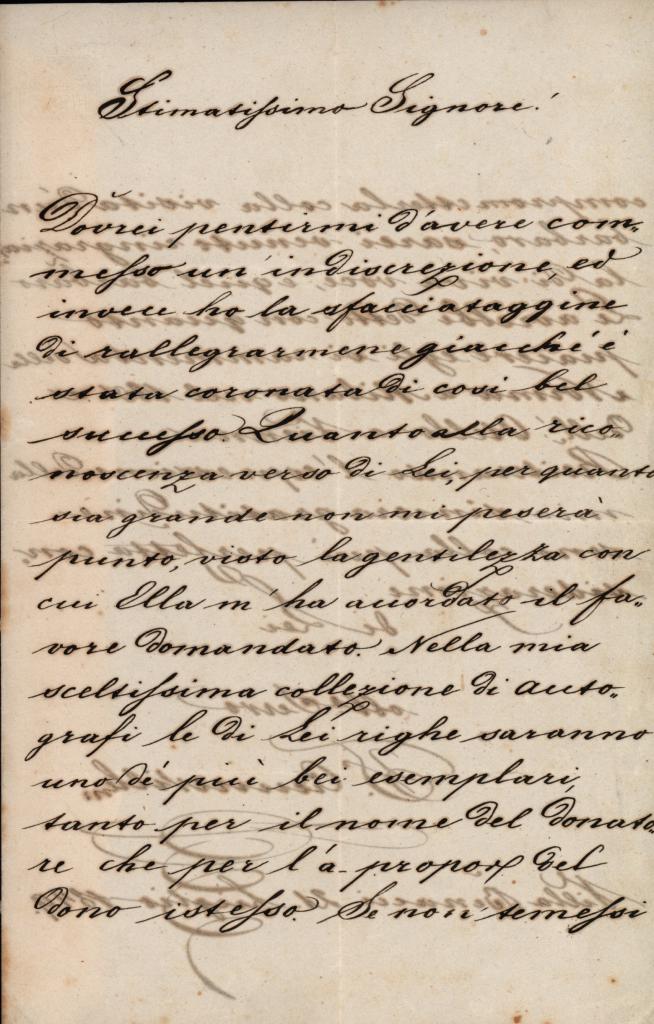 Stimatissimo Signore!
Dovrei pentirmi d'avere com-
messo un' indiscrezione, ed
invece ho la sfacciataggine
di rallegrarmene giacché è
stata coronata di così bel
successo. Quanto alla rico-
noscenza verso di Lei, per quanto
sia grande non mi peserà
punto, visto la gentilezza con
cui Ella m' ha accordato il fa-
vore domandato. Nella mia
sceltissima collezione di auto-
grafi le di Lei righe saranno
uno dé più bei esemplari,
tanto per il nome del donato-
re che per l'à-propos del
dono istesso. Se non temessi